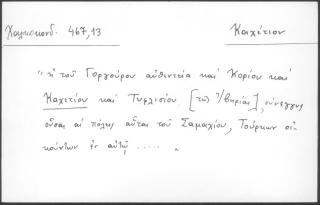 Χαλκοκονδ. 467,13 Καχέτιον
"ἡ τοῦ Γοργούρου αὐθεντεία καὶ Κορίου καὶ
Καχετίου καὶ Τυφλισίου [τῶν Ἰβηρίας], σύνεγγυς
οὖσαι αἱ πόλεις αὗται τοῦ Σαμαχίου, Τούρκων οἰ-
κούντων ἐν αὐτῇ ..... "